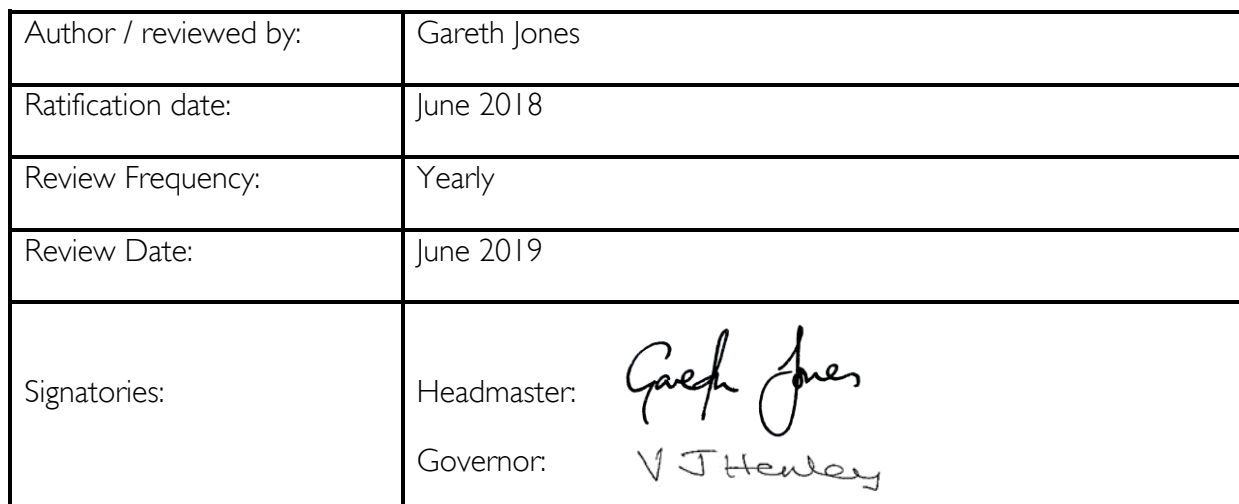 Author / reviewed by: Gareth Jones
Ratification date: June 2018
Review Frequency: Yearly
Review Date: June 2019
Signatories: Headmaster: Gareth Jones
Governor: V J Henley